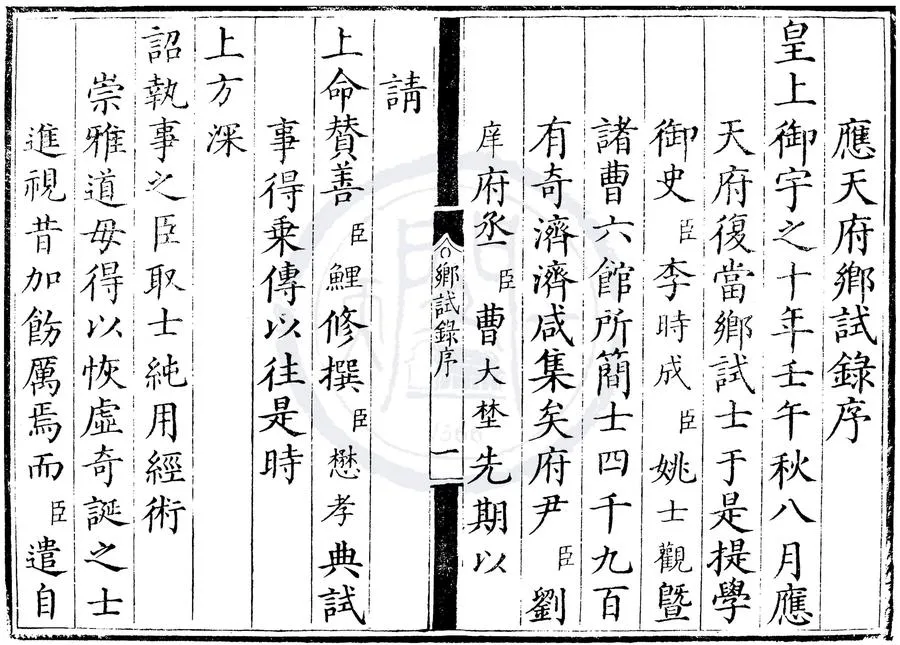 應天府鄉試錄序
皇上御宇之十年壬午秋八月應
天府復當鄉試士于是提學
御史臣李時成臣姚士觀暨
諸曹六館所簡士四千九百
有奇濟濟咸集矣府尹臣劉
庠府丞臣曹大埜先期以
鄉試錄序 一
請
上命贊善臣鯉修撰臣懋孝典試
事得乘傳以往是時
上方深
詔執事之臣取士純用經術
崇雅道毋得以恢虛奇誕之士
進視昔加飭厲焉而臣遣自
1566